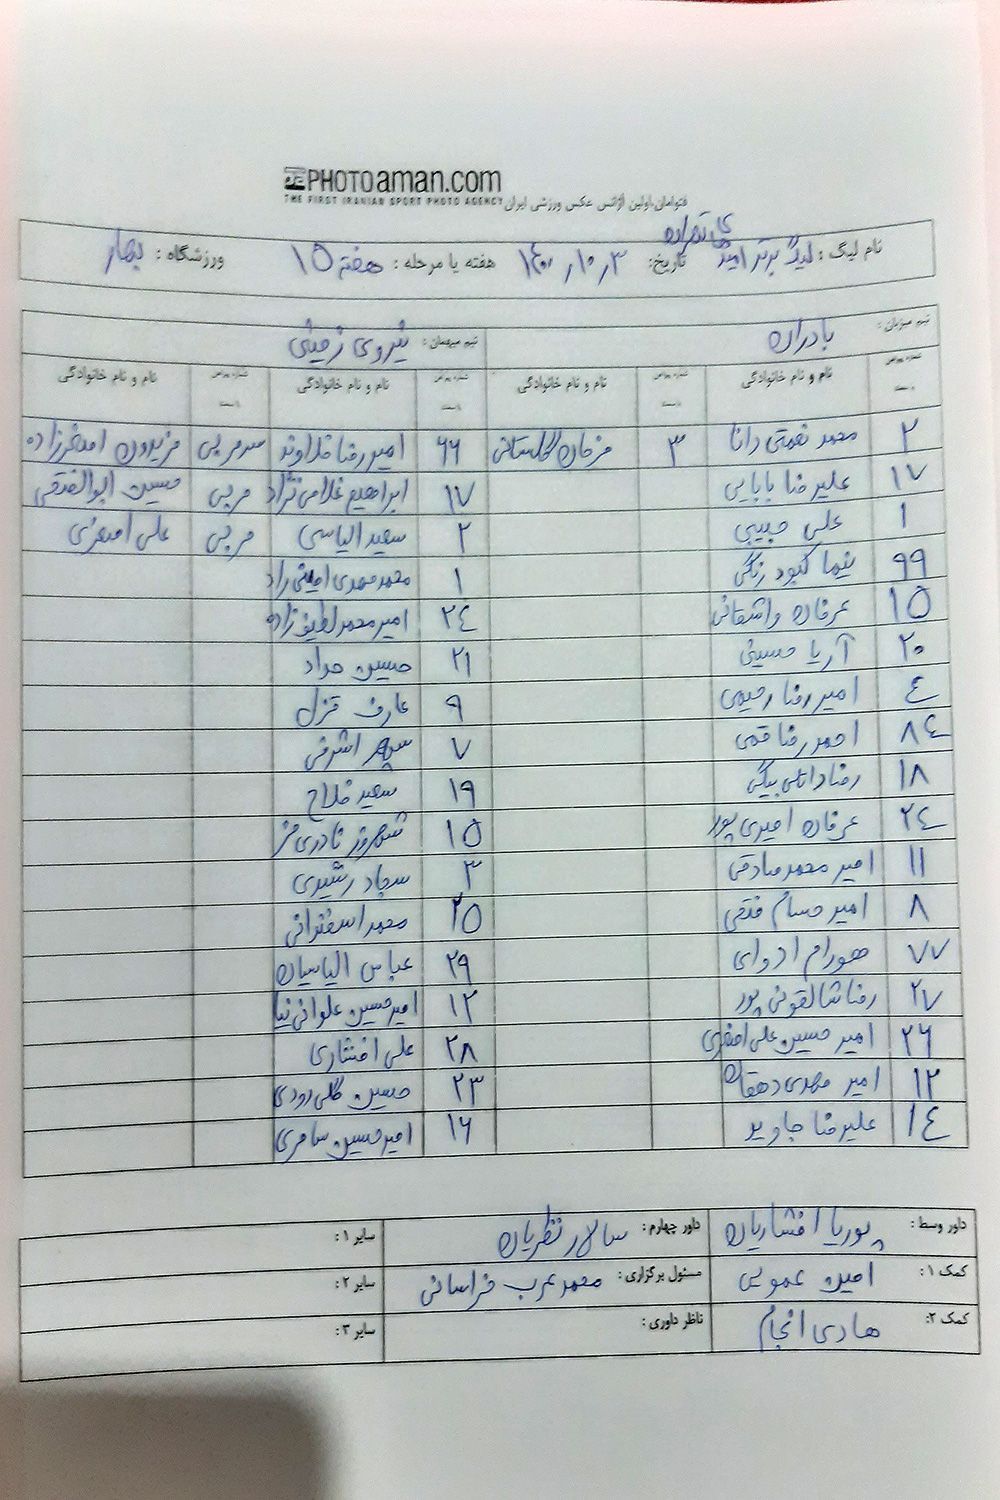 PHOTOaman.com
THE FIRST IRANIAN SPORT PHOTO AGENCY فتوامان،اولین آژانس عکس ورزشی ایران
نام لیگ : لیگ برتر امید تهران تاریخ: ۱۴۰۰٫۱۰٫۳ هفته یا مرحله : هفته ۱۵ ورزشگاه : بهار
تیم میزبان : بادران تیم میهمان : نیروی زمینی
نام و نام خانوادگی نام و نام خانوادگی نام و نام خانوادگی نام و نام خانوادگی
۲ محمد نعمتی دانا ۳ مرجان گلستانی ۶۶ امیررضا خداوند سرمربی فریدون اصغرزاده
۱۷ علیرضا بابایی ۱۷ ابراهیم غلامی نژاد مربی حسین ابوالفتحی
۱ علی حبیبی ۲ سعید الیاسی مربی علی اصغری
۹۹ نیما کبود رنگی ۱ محمدمهدی امینی راد
۱۵ عرفان واشقانی ۲۴ امیرمحمد لطیف زاده
۲۰ آریا حسینی ۲۱ حسین مراد
۴ امیررضا رحیمی ۹ عارف قزل
۸۴ احمدرضا قمی ۷ سپهر اشرفی
۱۸ رضا دانلی بیگی ۱۹ سعید فلاح
۲۴ عرفان امیری پور ۱۵ شهروز نادری فر
۱۱ امیر محمد صادقی ۳ سجاد رشیدی
۸ امیر حسام فتحی ۲۵ محمد اسفندرانی
۷۷ هورام ادوای ۲۹ عباس الیاسیان
۲۷ رضا شالقونی پور ۱۲ امیرحسین علوانی نیا
۲۶ امیر حسین علی اصغری ۲۸ علی افشاری
۱۲ امیر مهدی دهقان ۲۳ حسین گلی رودی
۱۴ علیرضا جاوید ۱۶ امیرحسین سامری
داور وسط : پوریا افشاریان داور چهارم : سالار نظریان سایر ۱ :
کمک ۱: امین عمویی مسئول برگزاری : محمد عرب خراسانی سایر ۲ :
کمک ۲: هادی انجام ناظر داوری : سایر ۳ :